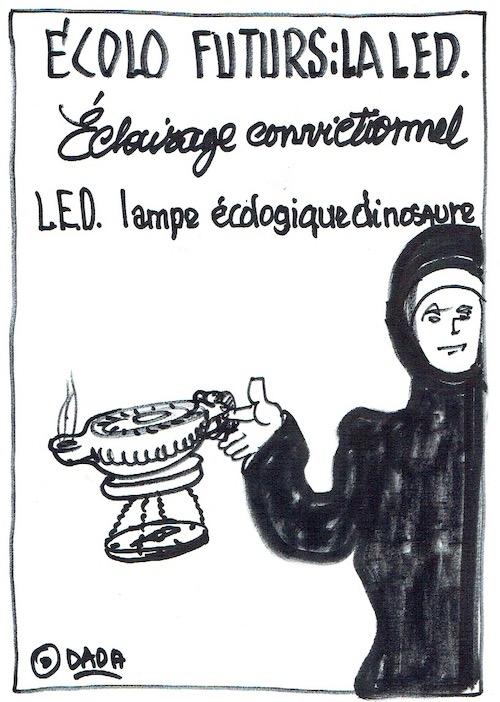 ÉCOLO FUTURS:LA LED.
Éclairage convictionnel
L.E.D. lampe écologique dinosaure
DADA